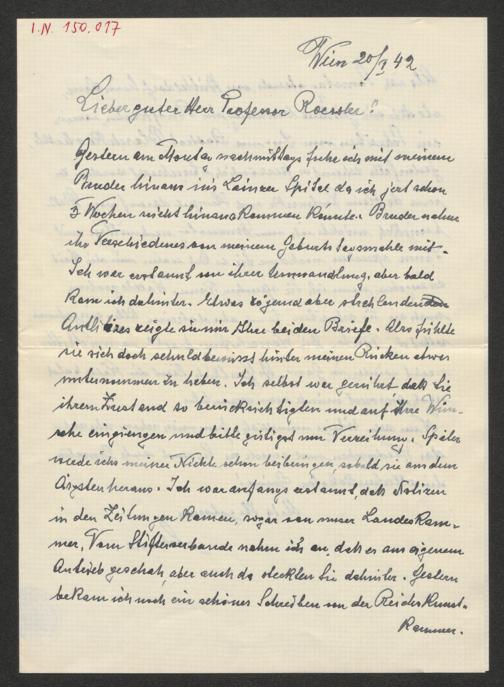 I.N. 150.017
Wien 20/I 42
Lieber guter Herr Professor Roessler!
Gestern am Montag nachmittags fuhr ich mit meinem
Bruder hinaus ins Lainzer Spital da ich jetzt schon
3 Wochen nicht hinaus kommen konnte. Bruder nahm
ihr Verschiedenes von meinem Geburtstagsmahle mit.
Ich war erstaunt von ihrer Umwandlung, aber bald
kam ich dahinter. Etwas zögernd aber strahlenden
Antlitzes zeigte sie mir Ihre beiden Briefe. Also fühlte
sie sich doch schuldbewusst hinter meinen Rücken etwas
unternommen zu haben. Ich selbst war gerührt daß Sie
ihren Zustand so berücksichtigten und auf ihre Wün-
sche eingiengen und bitte gütigst um Verzeihung. Später
werde ichs meiner Nichte schon beibringen sobald sie aus dem
heraus. Ich war anfangs erstaunt, daß Notizen
in den Zeitungen kamen, sogar von unser Landeskam-
mer, Vom nahm ich an, daß es aus eigenem
Antrieb geschah, aber auch da steckten Sie dahinter. Gestern
bekam ich noch ein schönes Schreiben von der Reichskunst-
kammer.